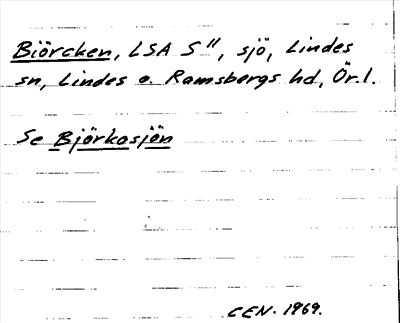 Biörcken, LSA S", sjö, Lindes
sn, Lindes o. Ramsbergs hd, Ör. l.
Se Björkasjön
CEN. 1969.